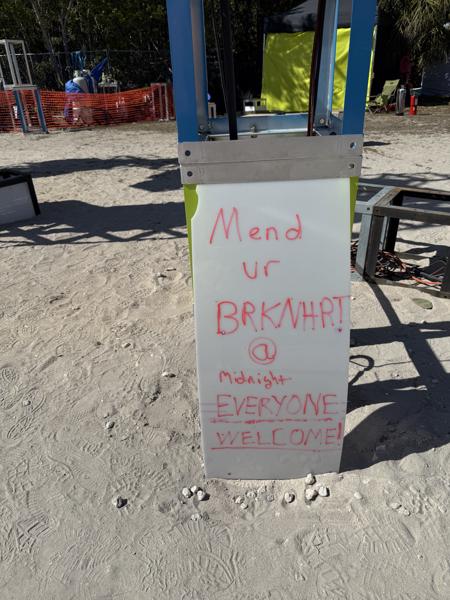 Mend
ur
BRKNHRT
@
Midnight
EVERYONE
WELCOME!